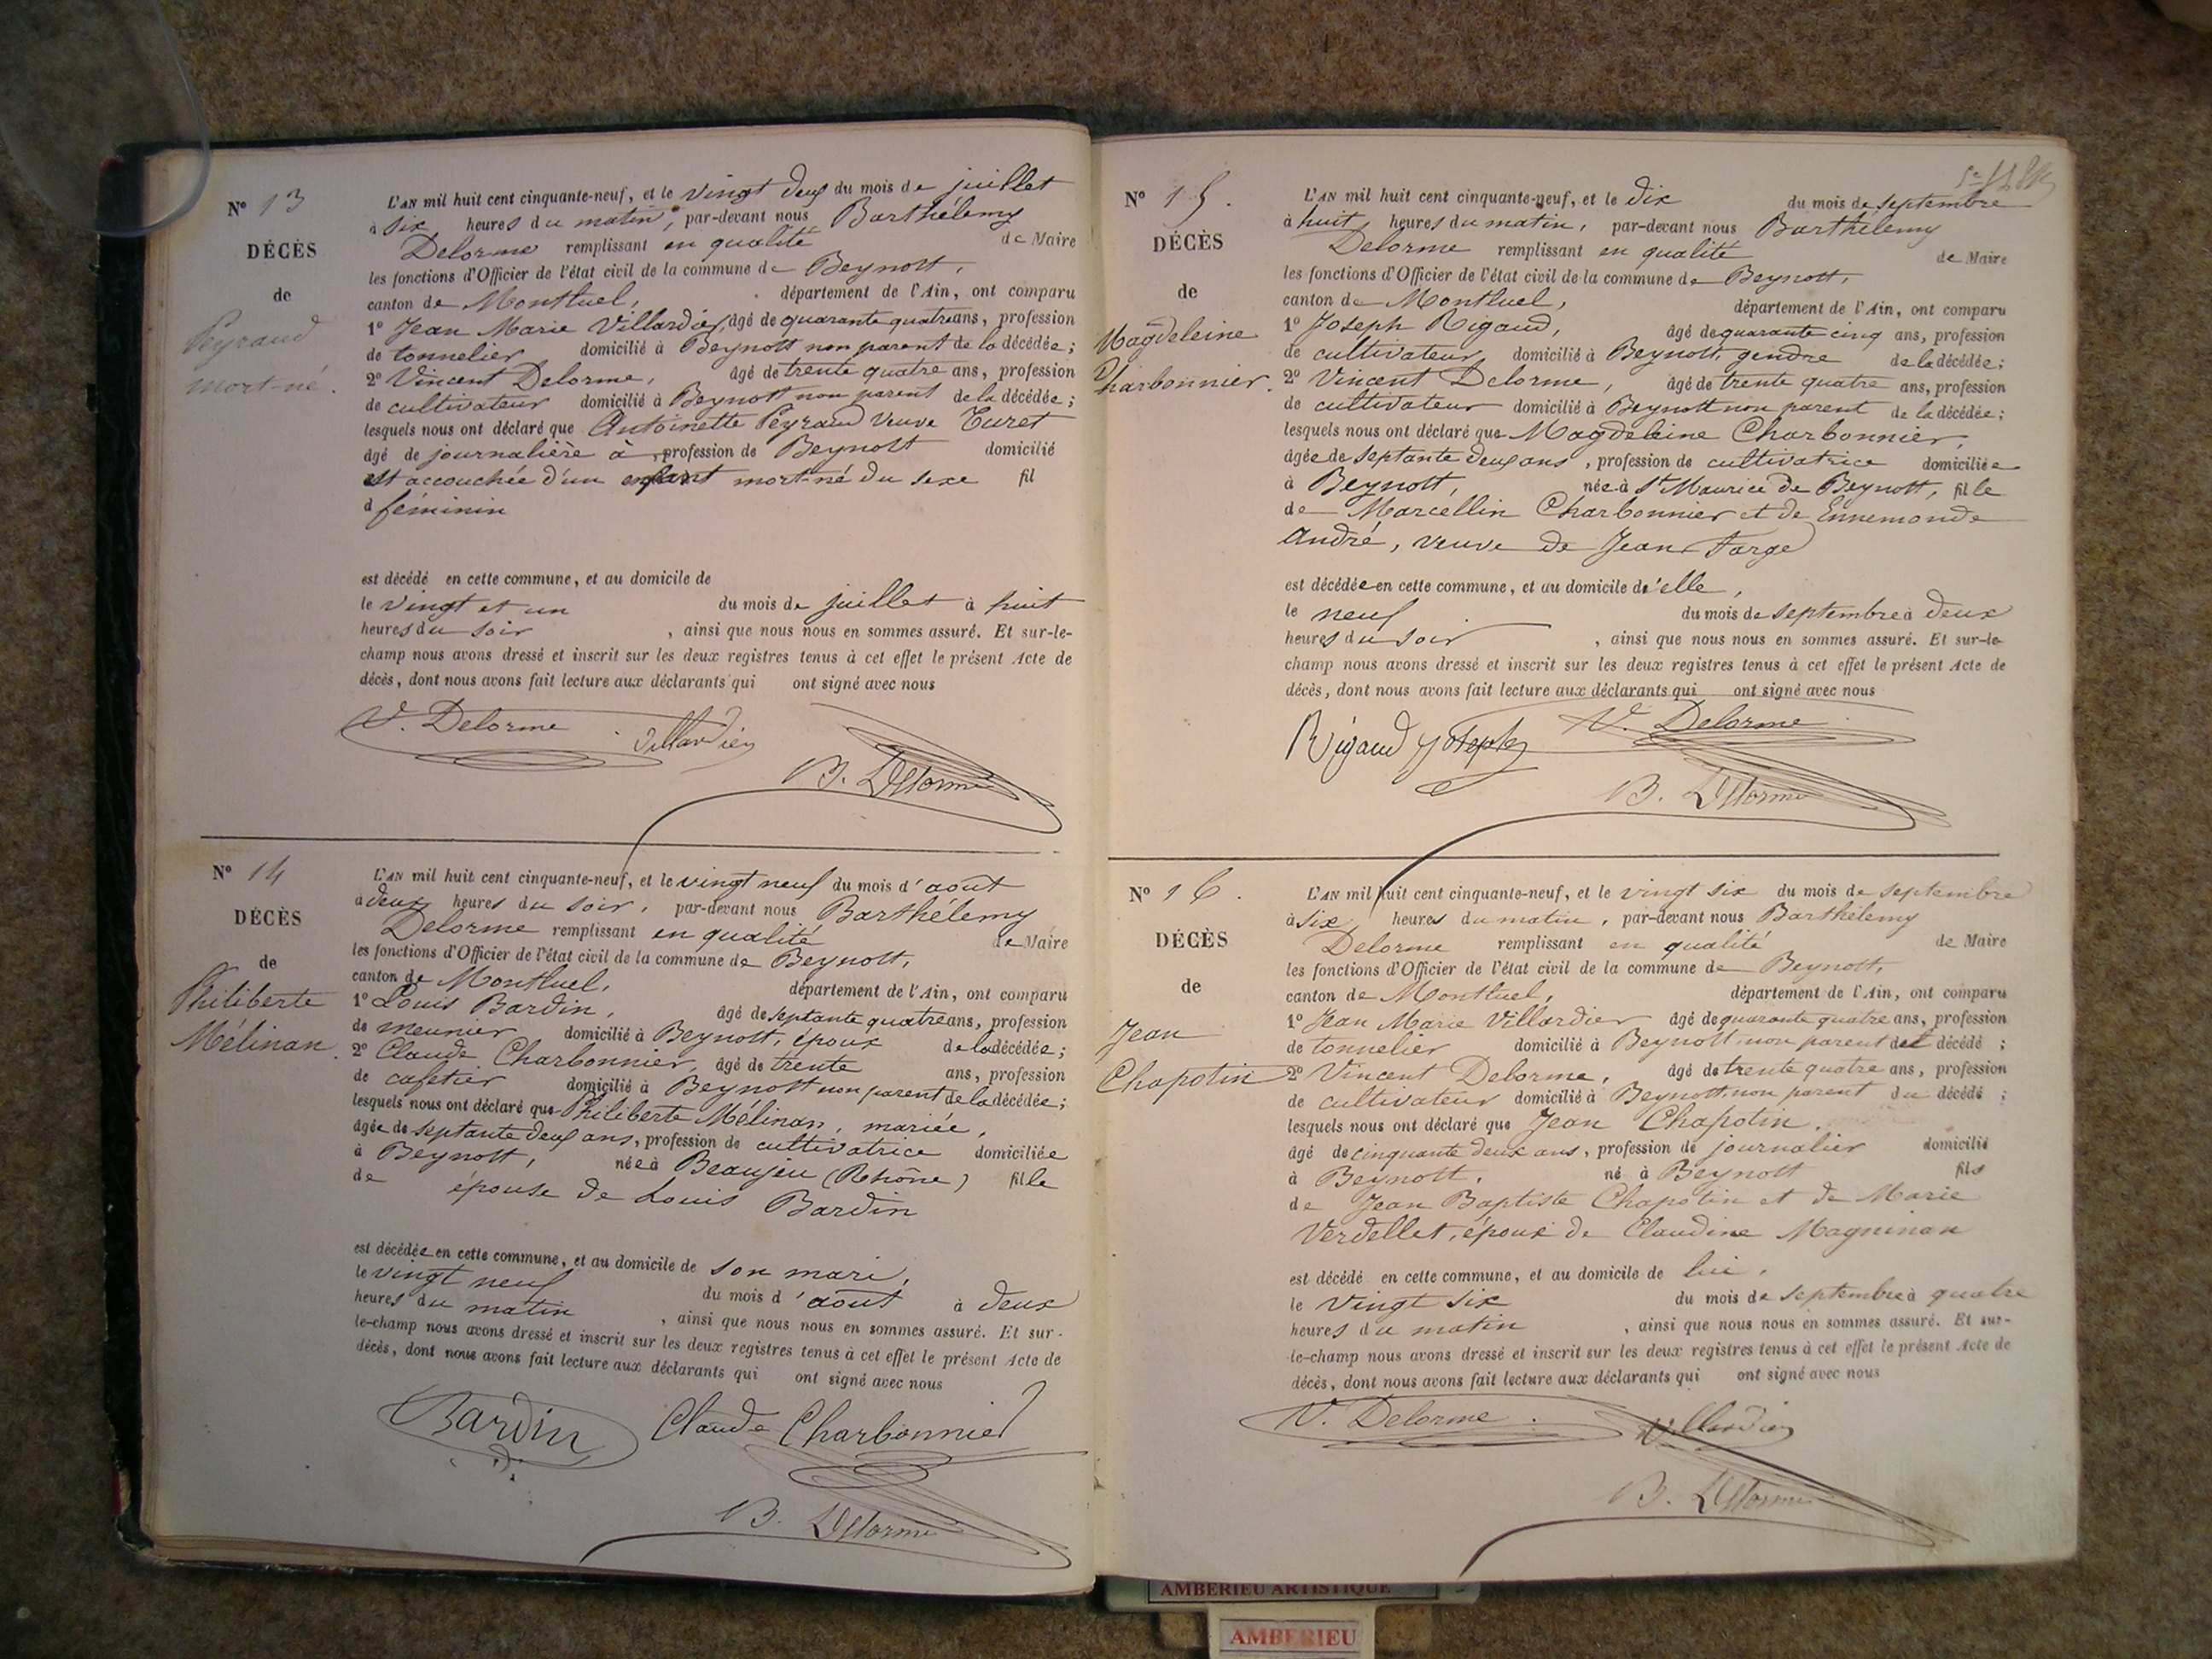 N° 13
DÉCÈS
de
Peyraud
mort-né.
L'AN mil huit cent cinquante-neuf, et le vingt deux du mois de juillet
à six heures du matin, par-devant nous Barthélemy
Delorme remplissant en qualité de Maire
les fonctions d'Officier de l'état civil de la commune de Beynost,
canton de Montluel, département de l'Ain, ont comparu
1° Jean Marie Villardier, âgé de quarante quatre ans, profession
de tonnelier domicilié à Beynost non parent de la décédée;
2° Vincent Delorme, âgé de trente quatre ans, profession
de cultivateur domicilié à Beynost non parent de la décédée;
lesquels nous ont déclaré que Antoinette Peyraud veuve Turet
âgé de journalière à, profession de Beynost domicilié
est accouchée d'un enfant mort-né du sexe fil
d féminin
est décédé en cette commune, et au domicile de
le vingt et un du mois de juillet à huit
heures du soir, ainsi que nous nous en sommes assuré. Et sur-le-
champ nous avons dressé et inscrit sur les deux registres tenus à cet effet le présent Acte de
décès, dont nous avons fait lecture aux déclarants qui ont signé avec nous
V. Delorme Villardier
B. Delorme
N° 14
DÉCÈS
de
Philiberte
Mélinan.
L'AN mil huit cent cinquante-neuf, et le vingt neuf du mois d'août
à deux heures du soir, par-devant nous Barthélemy
Delorme remplissant en qualité de Maire
les fonctions d'Officier de l'état civil de la commune de Beynost,
canton de Montluel, département de l'Ain, ont comparu
1° Louis Bardin, âgé de septante quatre ans, profession
de meunier domicilié à Beynost, époux de la décédée;
2° Claude Charbonnier, âgé de trente ans, profession
de cafetier domicilié à Beynost non parent de la décédée;
lesquels nous ont déclaré que Philiberte Mélinan, mariée,
âgée de septante deux ans, profession de cultivatrice domiciliée
à Beynost, née à Beaujeu (Rhône) fille
de épouse de Louis Bardin
est décédée en cette commune, et au domicile de son mari,
le vingt neuf du mois d'août à deux
heures du matin, ainsi que nous nous en sommes assuré. Et sur-
le-champ nous avons dressé et inscrit sur les deux registres tenus à cet effet le présent Acte de
décès, dont nous avons fait lecture aux déclarants qui ont signé avec nous
Bardin Claude Charbonnier
B. Delorme
N° 15.
DÉCÈS
de
Magdeleine
Charbonnier.
L'AN mil huit cent cinquante-neuf, et le dix du mois de septembre
à huit heures du matin, par-devant nous Barthélemy
Delorme remplissant en qualité de Maire
les fonctions d'Officier de l'état civil de la commune de Beynost,
canton de Montluel, département de l'Ain, ont comparu
1° Joseph Rigaud, âgé de quarante cinq ans, profession
de cultivateur, domicilié à Beynost, gendre de la décédée;
2° Vincent Delorme, âgé de trente quatre ans, profession
de cultivateur domicilié à Beynost non parent de la décédée;
lesquels nous ont déclaré que Magdeleine Charbonnier,
âgée de septante deux ans, profession de cultivatrice domiciliée
à Beynost, née à St Maurice de Beynost, fille
de Marcellin Charbonnier et de Ennemonde
André, veuve de Jean Farge
est décédée en cette commune, et au domicile d'elle,
le neuf du mois de septembre à deux
heures du soir, ainsi que nous nous en sommes assuré. Et sur-le-
champ nous avons dressé et inscrit sur les deux registres tenus à cet effet le présent Acte de
décès, dont nous avons fait lecture aux déclarants qui ont signé avec nous
Rigaud Joseph V. Delorme
B. Delorme
N° 16.
DÉCÈS
de
Jean
Chapotin
L'AN mil huit cent cinquante-neuf, et le vingt six du mois de septembre
à six heures du matin, par-devant nous Barthélemy
Delorme remplissant en qualité de Maire
les fonctions d'Officier de l'état civil de la commune de Beynost,
canton de Montluel, département de l'Ain, ont comparu
1° Jean Marie Villardier âgé de quarante quatre ans, profession
de tonnelier domicilié à Beynost, non parent del décédé;
2° Vincent Delorme, âgé de trente quatre ans, profession
de cultivateur domicilié à Beynost, non parent du décédé;
lesquels nous ont déclaré que Jean Chapotin,
âgé de cinquante deux ans, profession de journalier domicilié
à Beynost, né à Beynost fils
de Jean Baptiste Chapotin et de Marie
Verdellet, époux de Claudine Magninan
est décédé en cette commune, et au domicile de lui,
le vingt six du mois de septembre à quatre
heures du matin, ainsi que nous nous en sommes assuré. Et sur-
le-champ nous avons dressé et inscrit sur les deux registres tenus à cet effet le présent Acte de
décès, dont nous avons fait lecture aux déclarants qui ont signé avec nous
V. Delorme Villardier
B. Delorme
AMBERIEU ARTISTIQUE
AMBERIEU